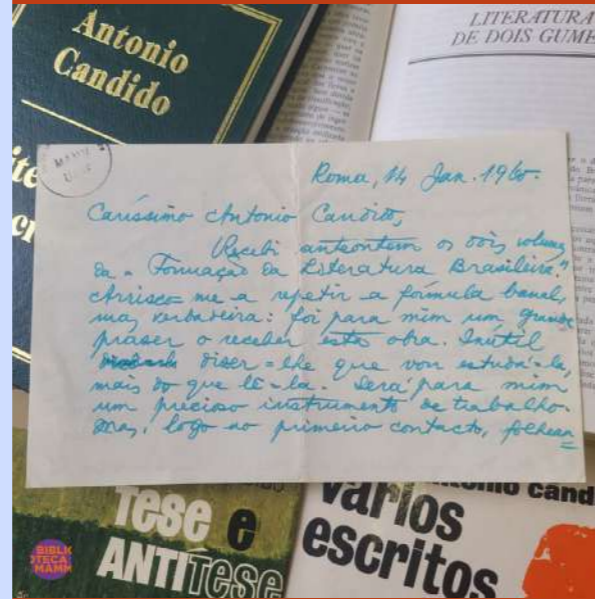 Antonio
Candido
LITERATURA
DE DOIS GUME
MAMM
Roma, 14 Jan. 1960.
Caríssimo Antonio Candido,
Recebi anteontem os dois volumes
da "Formação da Literatura Brasileira."
Arrisco-me a repetir a fórmula banal,
mas verdadeira: foi para mim um grande
praser o receber esta obra. Inútil
diser-lhe que vou estudá-la,
mais do que lê-la. Será para mim
um precioso instrumento de trabalho.
Mas, logo no primeiro contacto, folhean
Tese e
ANTÍTESE
vários
escritos
onio cand
BIBLI
OTECA
MAMM